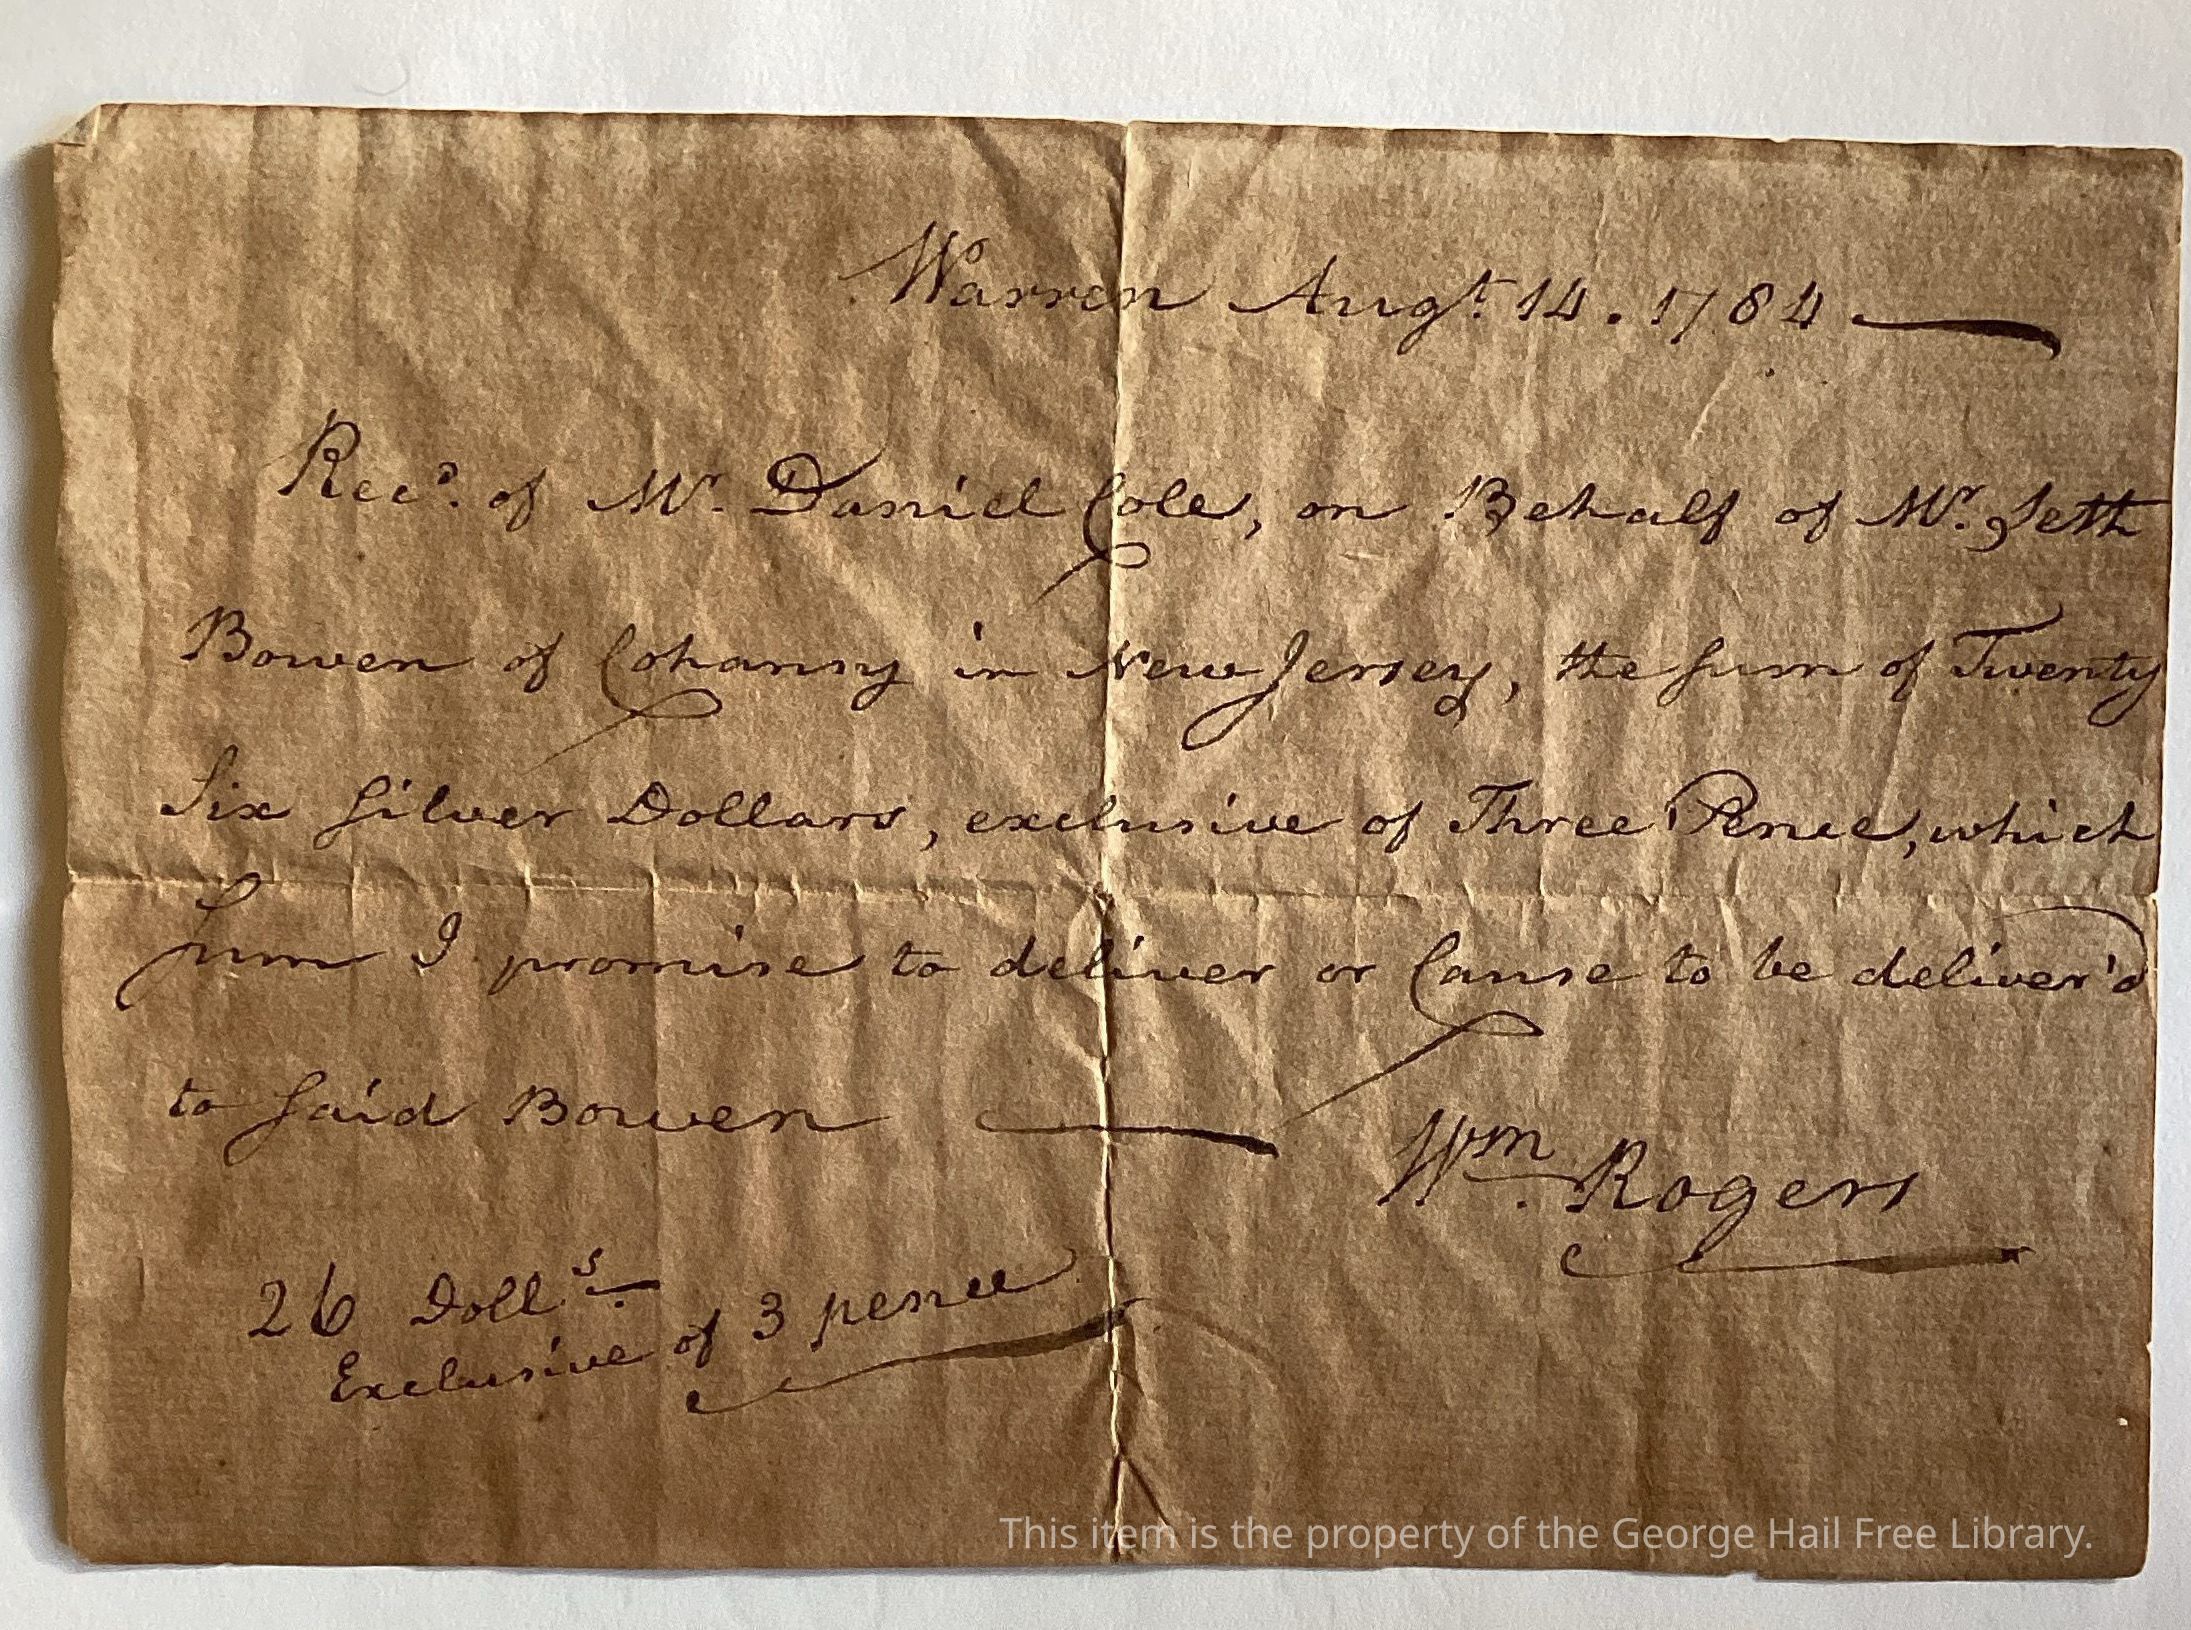 Warren Augt. 14. 1784
Recd. of Mr. Daniel Cole, on Behalf of Mr. Seth
Bowen of Cohansy in New Jersey, the Sum of Twenty
Six Silver Dollars, exclusive of Three Pence, which
Sum I promise to deliver or Cause to be deliver'd
to Said Bowen
Wm. Rogers
26 Dolls.
Exclusive of 3 pence
This item is the property of the George Hail Free Library.